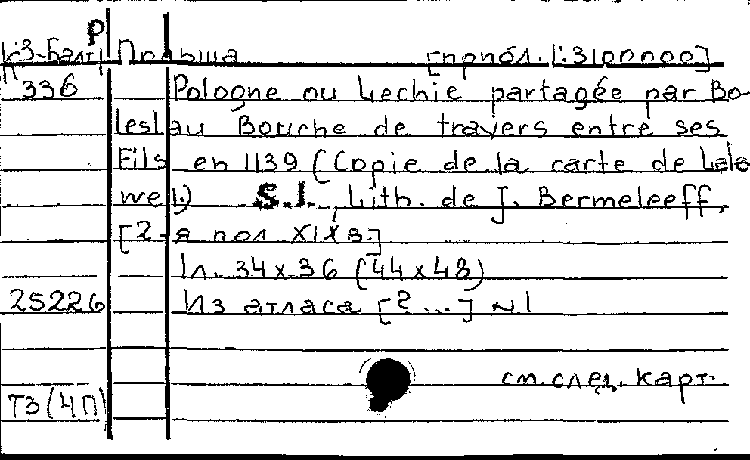 Р
К3-Балт Польша [приол. 1:3100000]
П 336 Pologne ou Lechie partagée par Bo-
leslau Bouche de travers entre ses
Fils en 1139 (Copie de la carte de Lele-
wel) S.l., Lith. de J. Bermeleeff,
[2-я пол XIX в.]
1л. 34x36 (44x48)
25226 Из атласа [?...] №1
см. спец. карт.
ТЗ(4П)